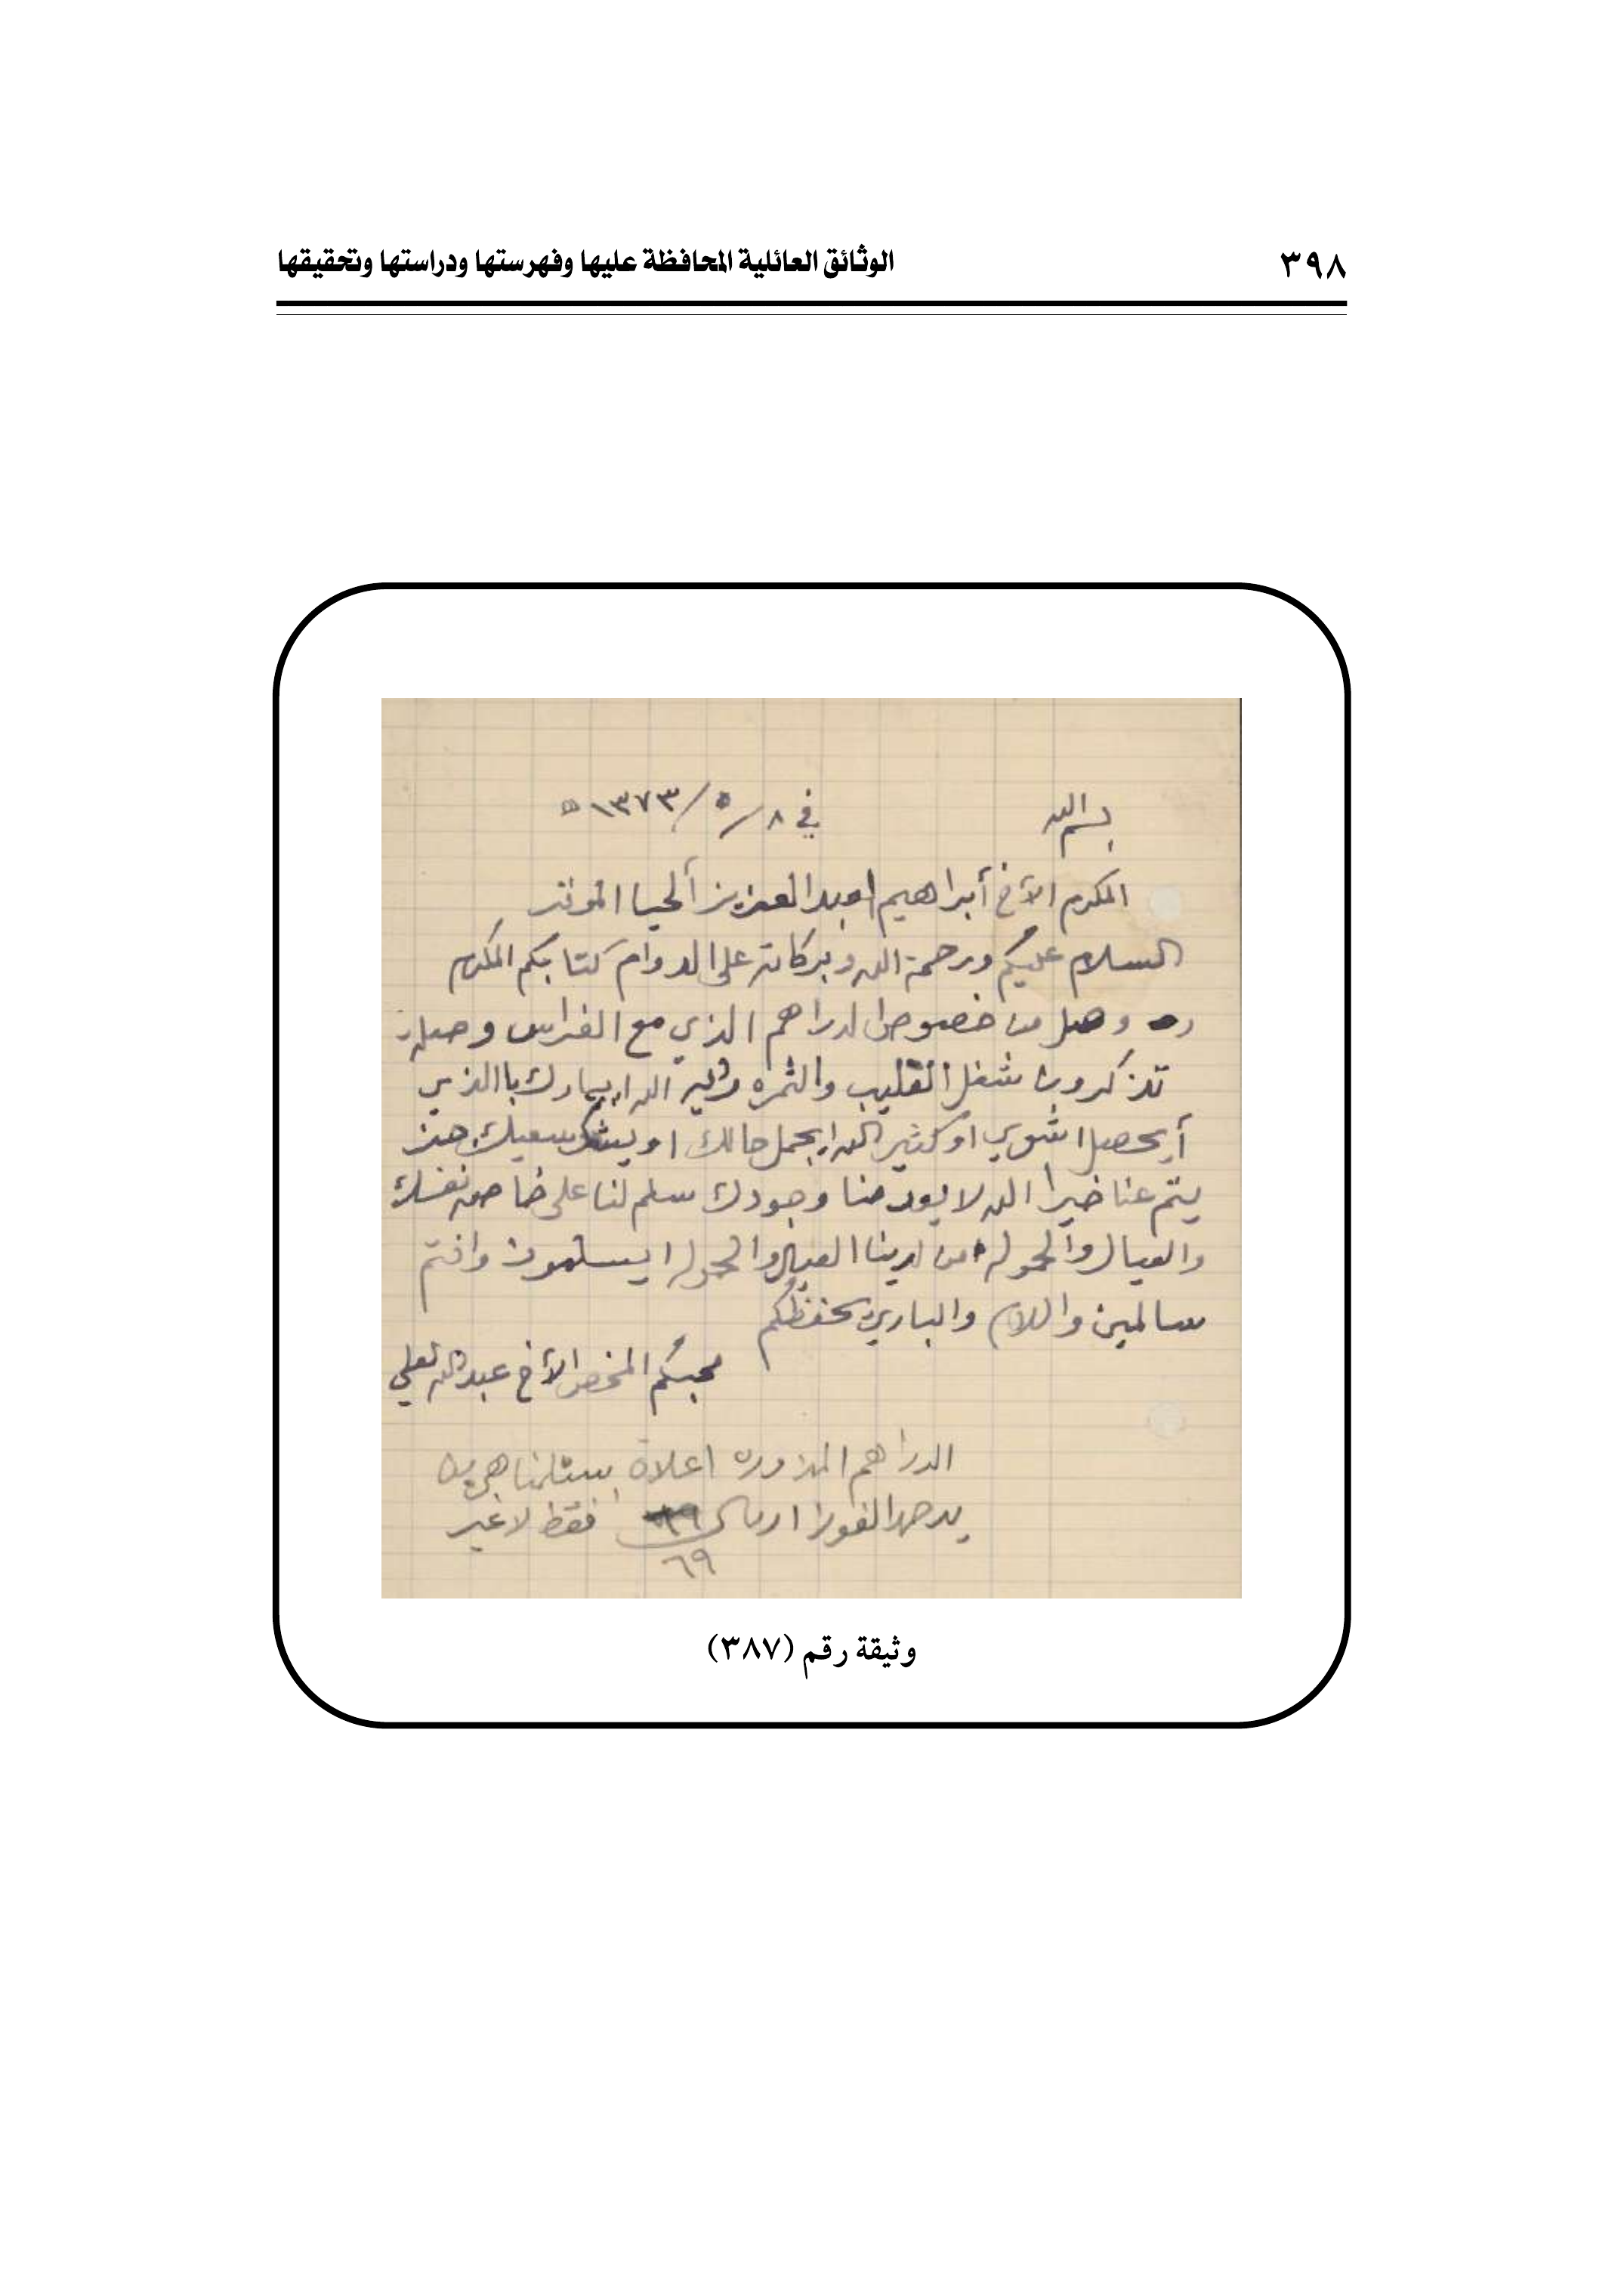 ٣٩٨
الوثائق العائلية المحافظة عليها وفهرستها ودراستها وتحقيقها
بسم الله
في ٨/٥/١٣٧٣ه
المكرم الآخ أبراهيم اعبدالعزيز ألحيا الموقر
السلام عليكم ورحمة الله وبركاته على الدوام كتابكم المكرم
وصل من خصوص الدراهم الذي مع الفراس وصله
تذكرون شغل القليب والثمره الله ايبارك باالذي
أيحصل اشوي او كثير الله ايجمل حالك او يشكر سعيك
يتم عنا خيرا الله لا يعدمنا وجودك سلم لنا على خاصه نفسك
والعيال والحموله من لدينا العيال والحموله ايسلمون وانتم
سالمين والسلام والباري يحفظكم
محبكم المخلص الآخ عبدالله لعلي
الدراهم اعلاه
اريال ٦٩ فقط لاغير
٦٩
وثيقة رقم (٣٨٧)